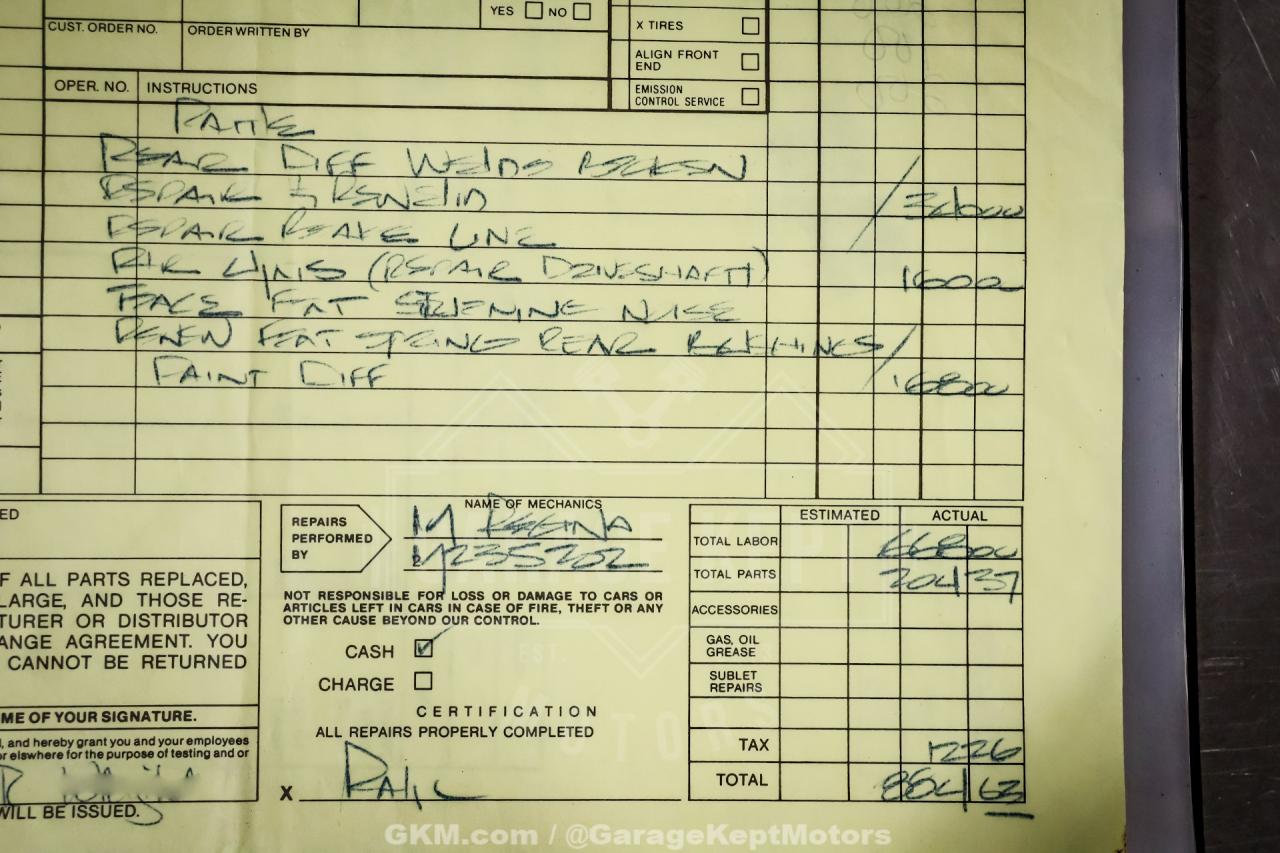 YES NO
X TIRES
CUST. ORDER NO. ORDER WRITTEN BY
ALIGN FRONT
END
OPER. NO. INSTRUCTIONS
EMISSION
CONTROL SERVICE
REAR DIFF WELDS BROKEN
REPAIR & REWELD 34000
REPAIR BRAKE LINE
(REPAIR DRIVESHAFT) 16000
NOISE
RENEW SPRING REAR BUSHINGS
PAINT DIFF 16800
NAME OF MECHANICS
ED
REPAIRS
PERFORMED
BY
M REGINA
235202
ESTIMATED ACTUAL
TOTAL LABOR 66800
TOTAL PARTS 204 37
ACCESSORIES
GAS, OIL
GREASE
SUBLET
REPAIRS
TAX 1226
TOTAL 884 63
F ALL PARTS REPLACED,
LARGE, AND THOSE RE-
TURER OR DISTRIBUTOR
ANGE AGREEMENT. YOU
CANNOT BE RETURNED
NOT RESPONSIBLE FOR LOSS OR DAMAGE TO CARS OR
ARTICLES LEFT IN CARS IN CASE OF FIRE, THEFT OR ANY
OTHER CAUSE BEYOND OUR CONTROL.
CASH
CHARGE
CERTIFICATION
ALL REPAIRS PROPERLY COMPLETED
X
ME OF YOUR SIGNATURE.
, and hereby grant you and your employees
or elswhere for the purpose of testing and or
WILL BE ISSUED.
GKM.com / @GarageKeptMotors